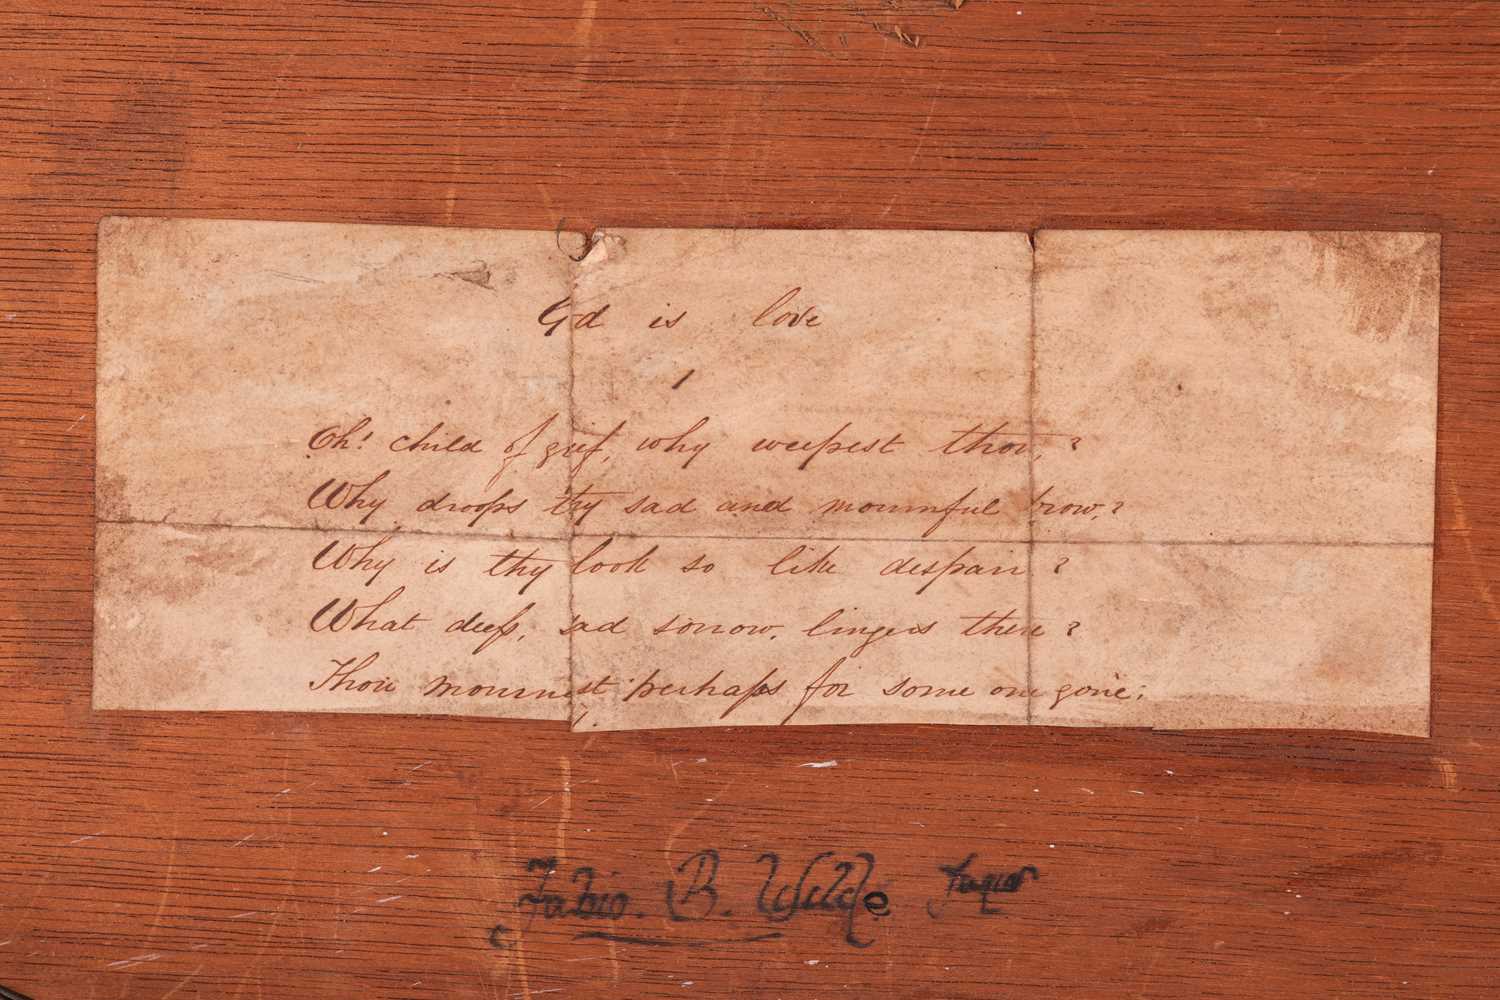 Gd is love
1
Oh! child of grief, why weepest thou,?
Why droops thy sad and mournful brow,?
Why is thy look so like despair?
What deep, sad sorrow, lingers there?
Thou mournest perhaps for some one gone;
Fabio. B. Wilde